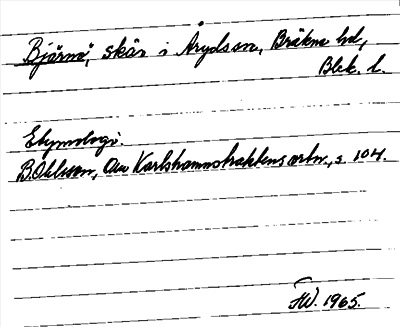 Bjärnö, skär i Arydsön, Bräkne hd,
Blek. l.
Etymologi.
B. Ohlsson, Om Karlshamnstraktens ortn., s. 104.
FW. 1965.